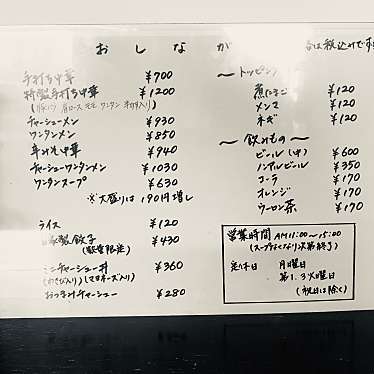 おしながき
は税込みです
手打ち中華 ¥700
特製手打ち中華 ¥1200
チャーシューメン ¥930
ワンタンメン ¥850
辛みそ中華 ¥940
チャーシューワンタンメン ¥1030
ワンタンスープ ¥630
※大盛りは190円増し
ライス ¥120
製餃子 ¥430
(数量限定)
ミニチャーシュー丼 ¥360
(わさび入り)(マヨネーズ入り)
おつまみチャーシュー ¥280
〜トッピング
煮たまご ¥120
メンマ ¥120
ネギ ¥120
〜飲みもの〜
ビール(中) ¥600
ノンアルビール ¥350
コーラ ¥170
オレンジ ¥170
ウーロン茶 ¥170
営業時間 AM11:00〜15:00
(スープなくなり次第終了)
定休日 月曜日
第1.3火曜日
(祝日は除く)